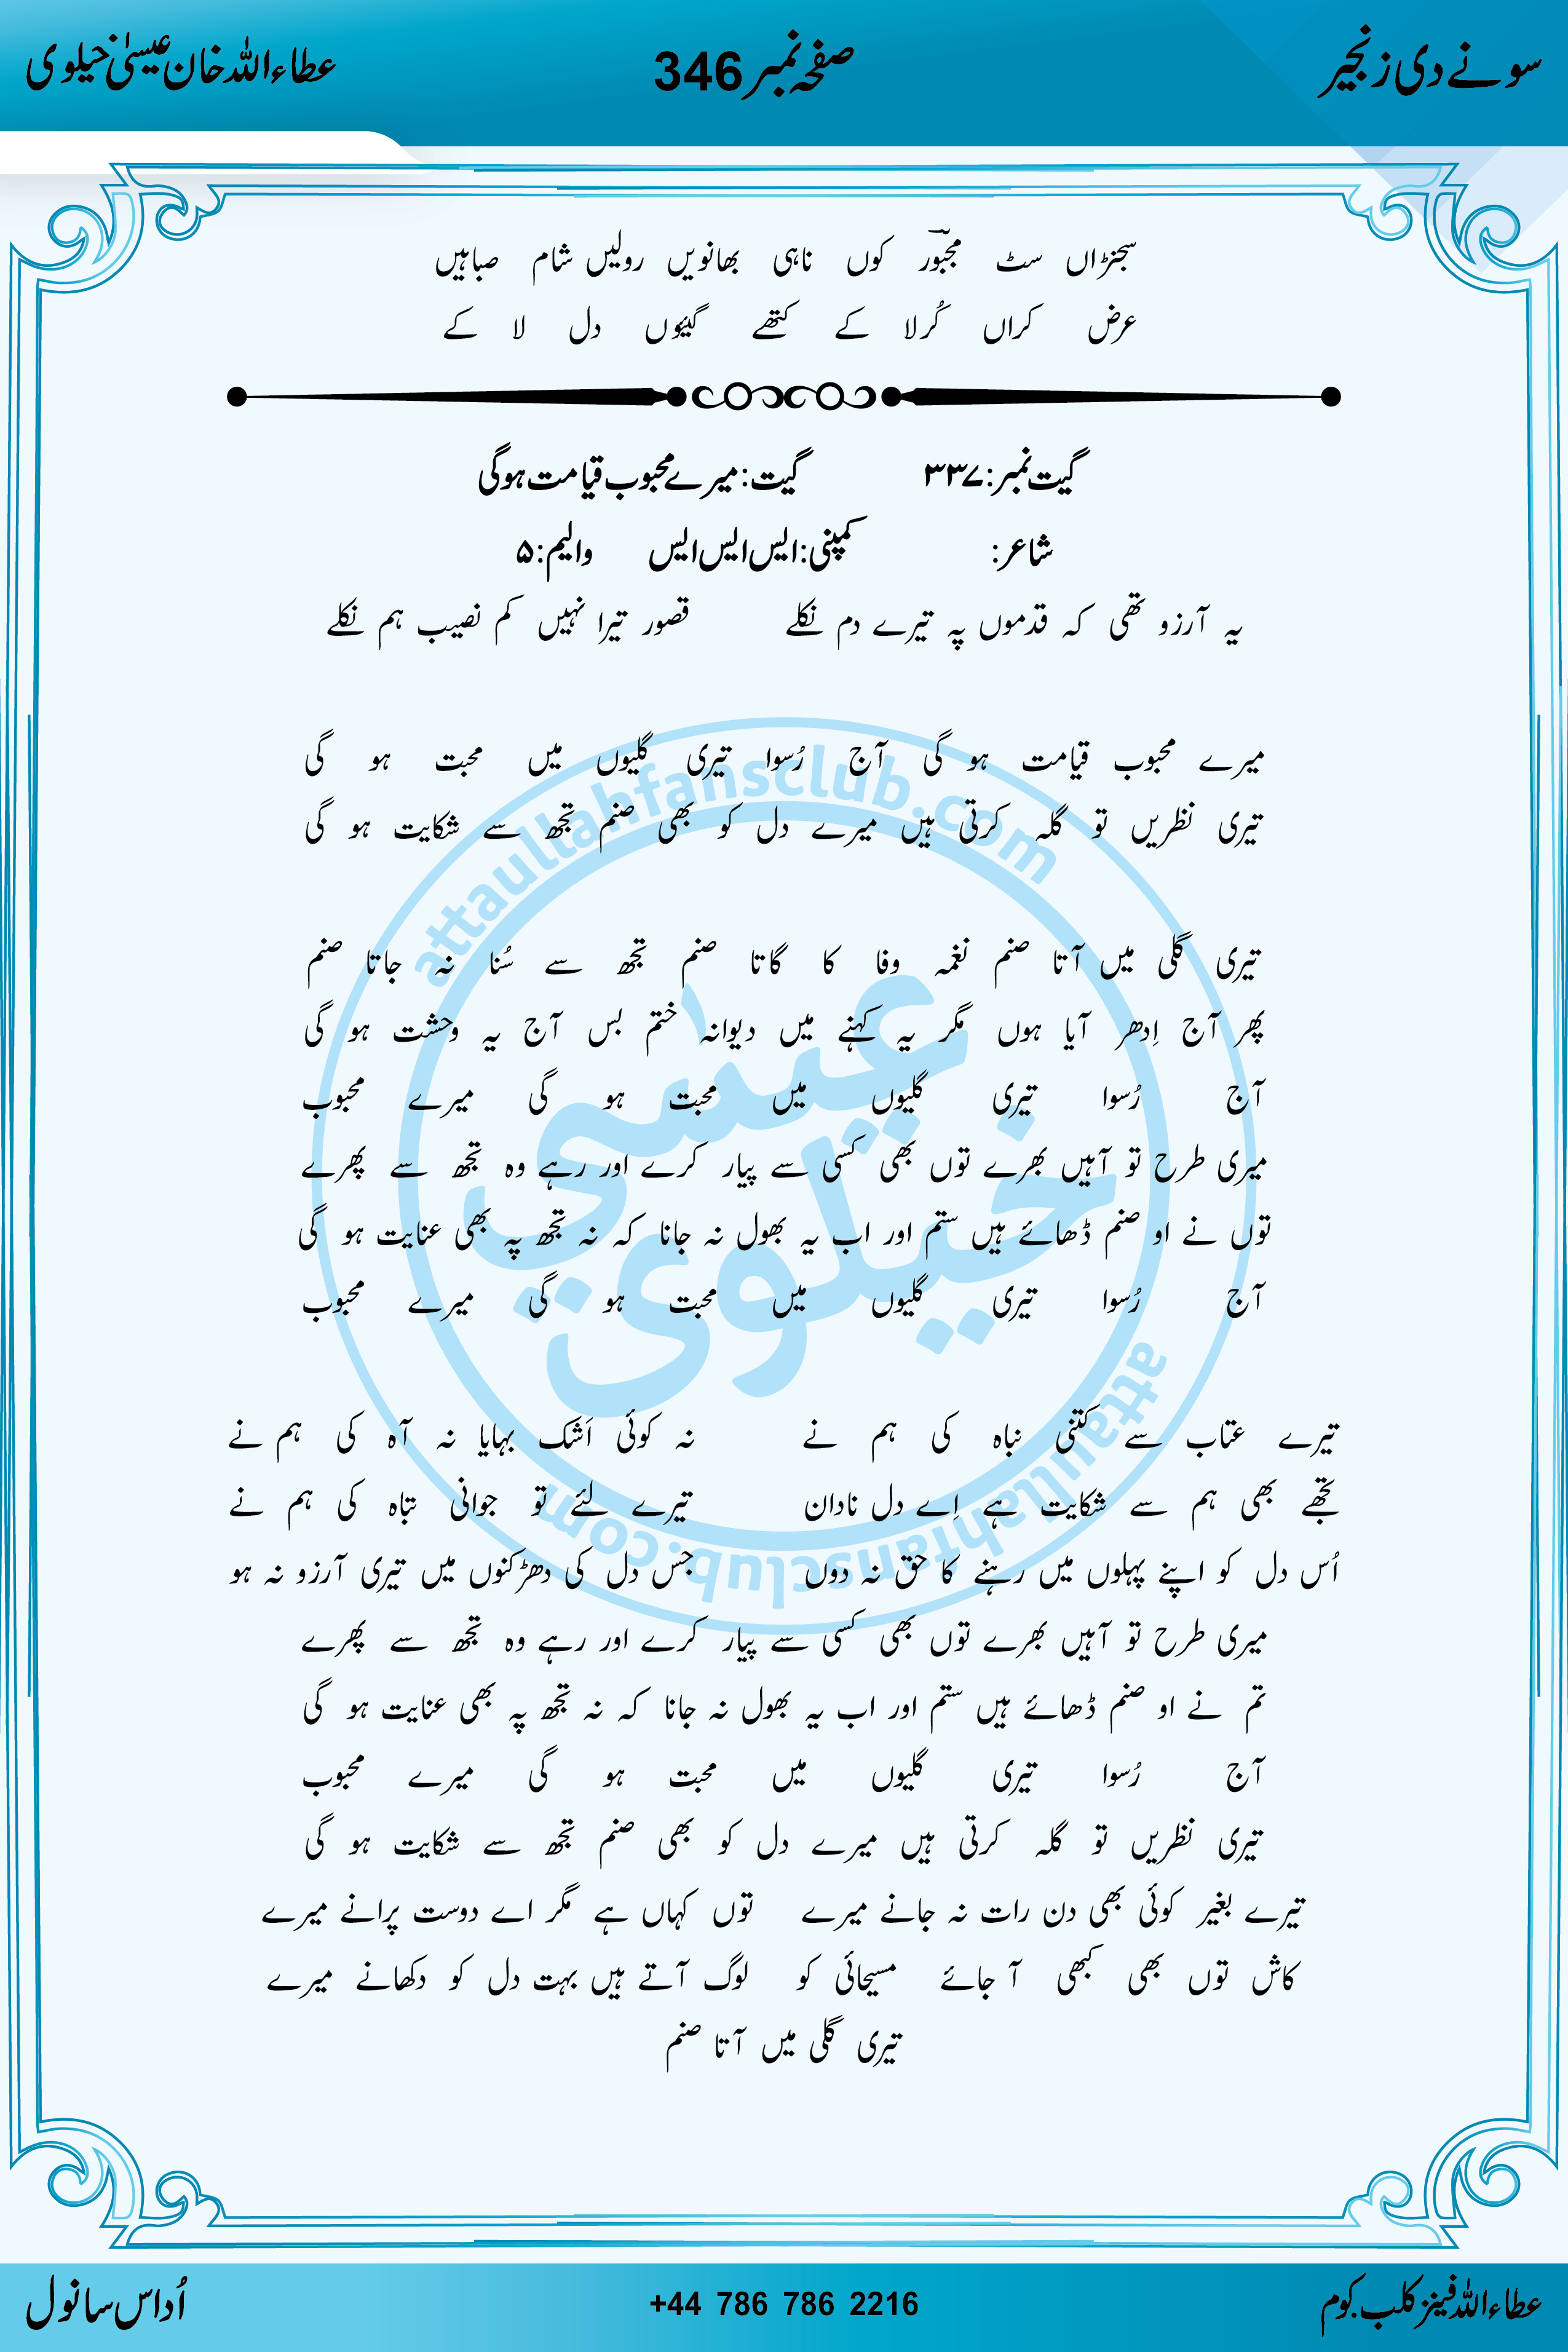 سونے دی زنجیر صفحہ نمبر 346 عطاءاللہ خان عیسیٰ خیلوی
سجنڑاں سٹ مجبورؔ کوں ناہی بھانویں رولیں شام صباہیں
عرض کراں کُرلا کے کتھے گیئوں دل لا کے
گیت نمبر: ۳۳۷ گیت: میرے محبوب قیامت ہو گی
شاعر: کمپنی: ایس ایس ایس والیم: ۵
یہ آرزو تھی کہ قدموں پہ تیرے دم نکلے قصور تیرا نہیں کم نصیب ہم نکلے
میرے محبوب قیامت ہو گی آج رُسوا تیری گلیوں میں محبت ہو گی
تیری نظریں تو گلہ کرتی ہیں میرے دل کو بھی صنم تجھ سے شکایت ہو گی
تیری گلی میں آتا صنم نغمہ وفا کا گاتا صنم تجھ سے سُنا نہ جاتا صنم
پھر آج اِدھر آیا ہوں مگر یہ کہنے میں دیوانہ ختم بس آج یہ وحشت ہو گی
آج رُسوا تیری گلیوں میں محبت ہو گی میرے محبوب
میری طرح تو آہیں بھرے توں بھی کسی سے پیار کرے اور رہے وہ تجھ سے پھرے
توں نے او صنم ڈھائے ہیں ستم اور اب یہ بھول نہ جانا کہ نہ تجھ پہ بھی عنایت ہو گی
آج رُسوا تیری گلیوں میں محبت ہو گی میرے محبوب
تیرے عتاب سے کتنی نباہ کی ہم نے نہ کوئی اَشک بہایا نہ آہ کی ہم نے
تجھے بھی ہم سے شکایت ہے اِے دل نادان تیرے لئے تو جوانی تباہ کی ہم نے
اُس دل کو اپنے پہلوں میں رہنے کا حق نہ دوں جس دل کی دھڑکنوں میں تیری آرزو نہ ہو
میری طرح تو آہیں بھرے توں بھی کسی سے پیار کرے اور رہے وہ تجھ سے پھرے
تم نے او صنم ڈھائے ہیں ستم اور اب یہ بھول نہ جانا کہ نہ تجھ پہ بھی عنایت ہو گی
آج رُسوا تیری گلیوں میں محبت ہو گی میرے محبوب
تیری نظریں تو گلہ کرتی ہیں میرے دل کو بھی صنم تجھ سے شکایت ہو گی
تیرے بغیر کوئی بھی دن رات نہ جانے میرے توں کہاں ہے مگر اے دوست پرانے میرے
کاش توں بھی کبھی آ جائے مسیحائی کو لوگ آتے ہیں بہت دل کو دکھانے میرے
تیری گلی میں آتا صنم
attaullahfansclub.com
عیسیٰ خیلوی
attaullahfansclub.com
عطاءاللہ فینز کلب.کوم +44 786 786 2216 اُداس سانول